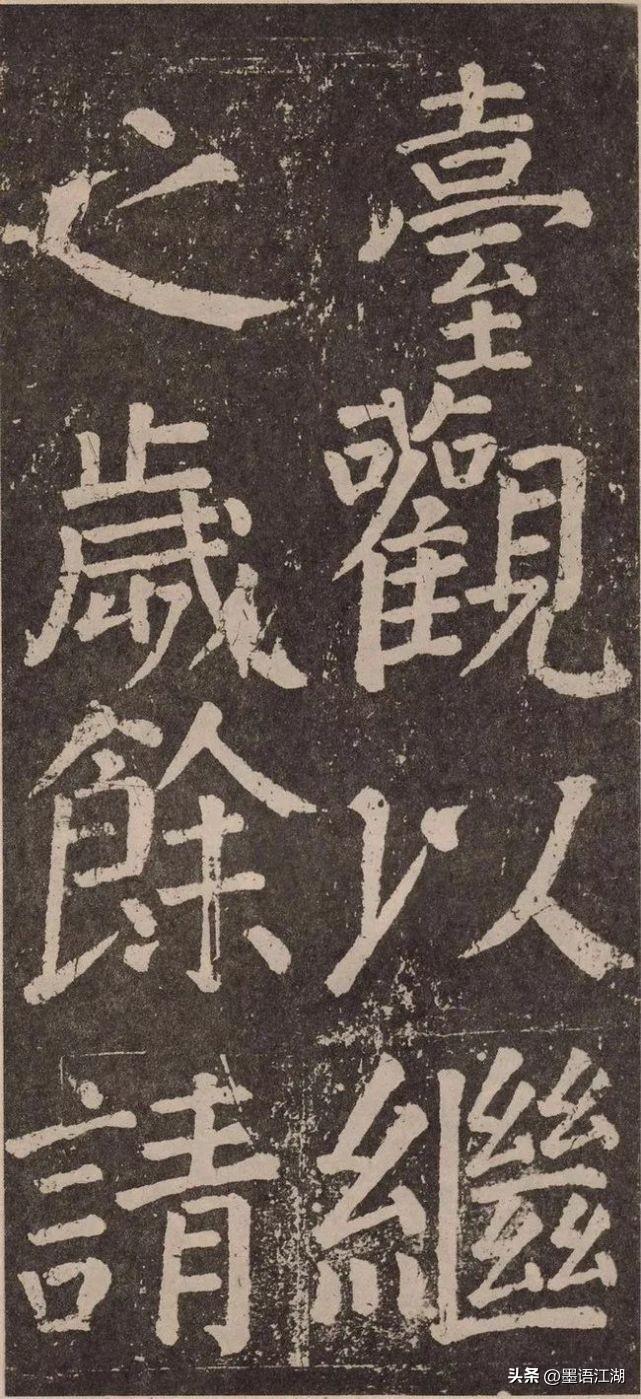 臺觀以繼
之歲餘請
头条 @墨语江湖